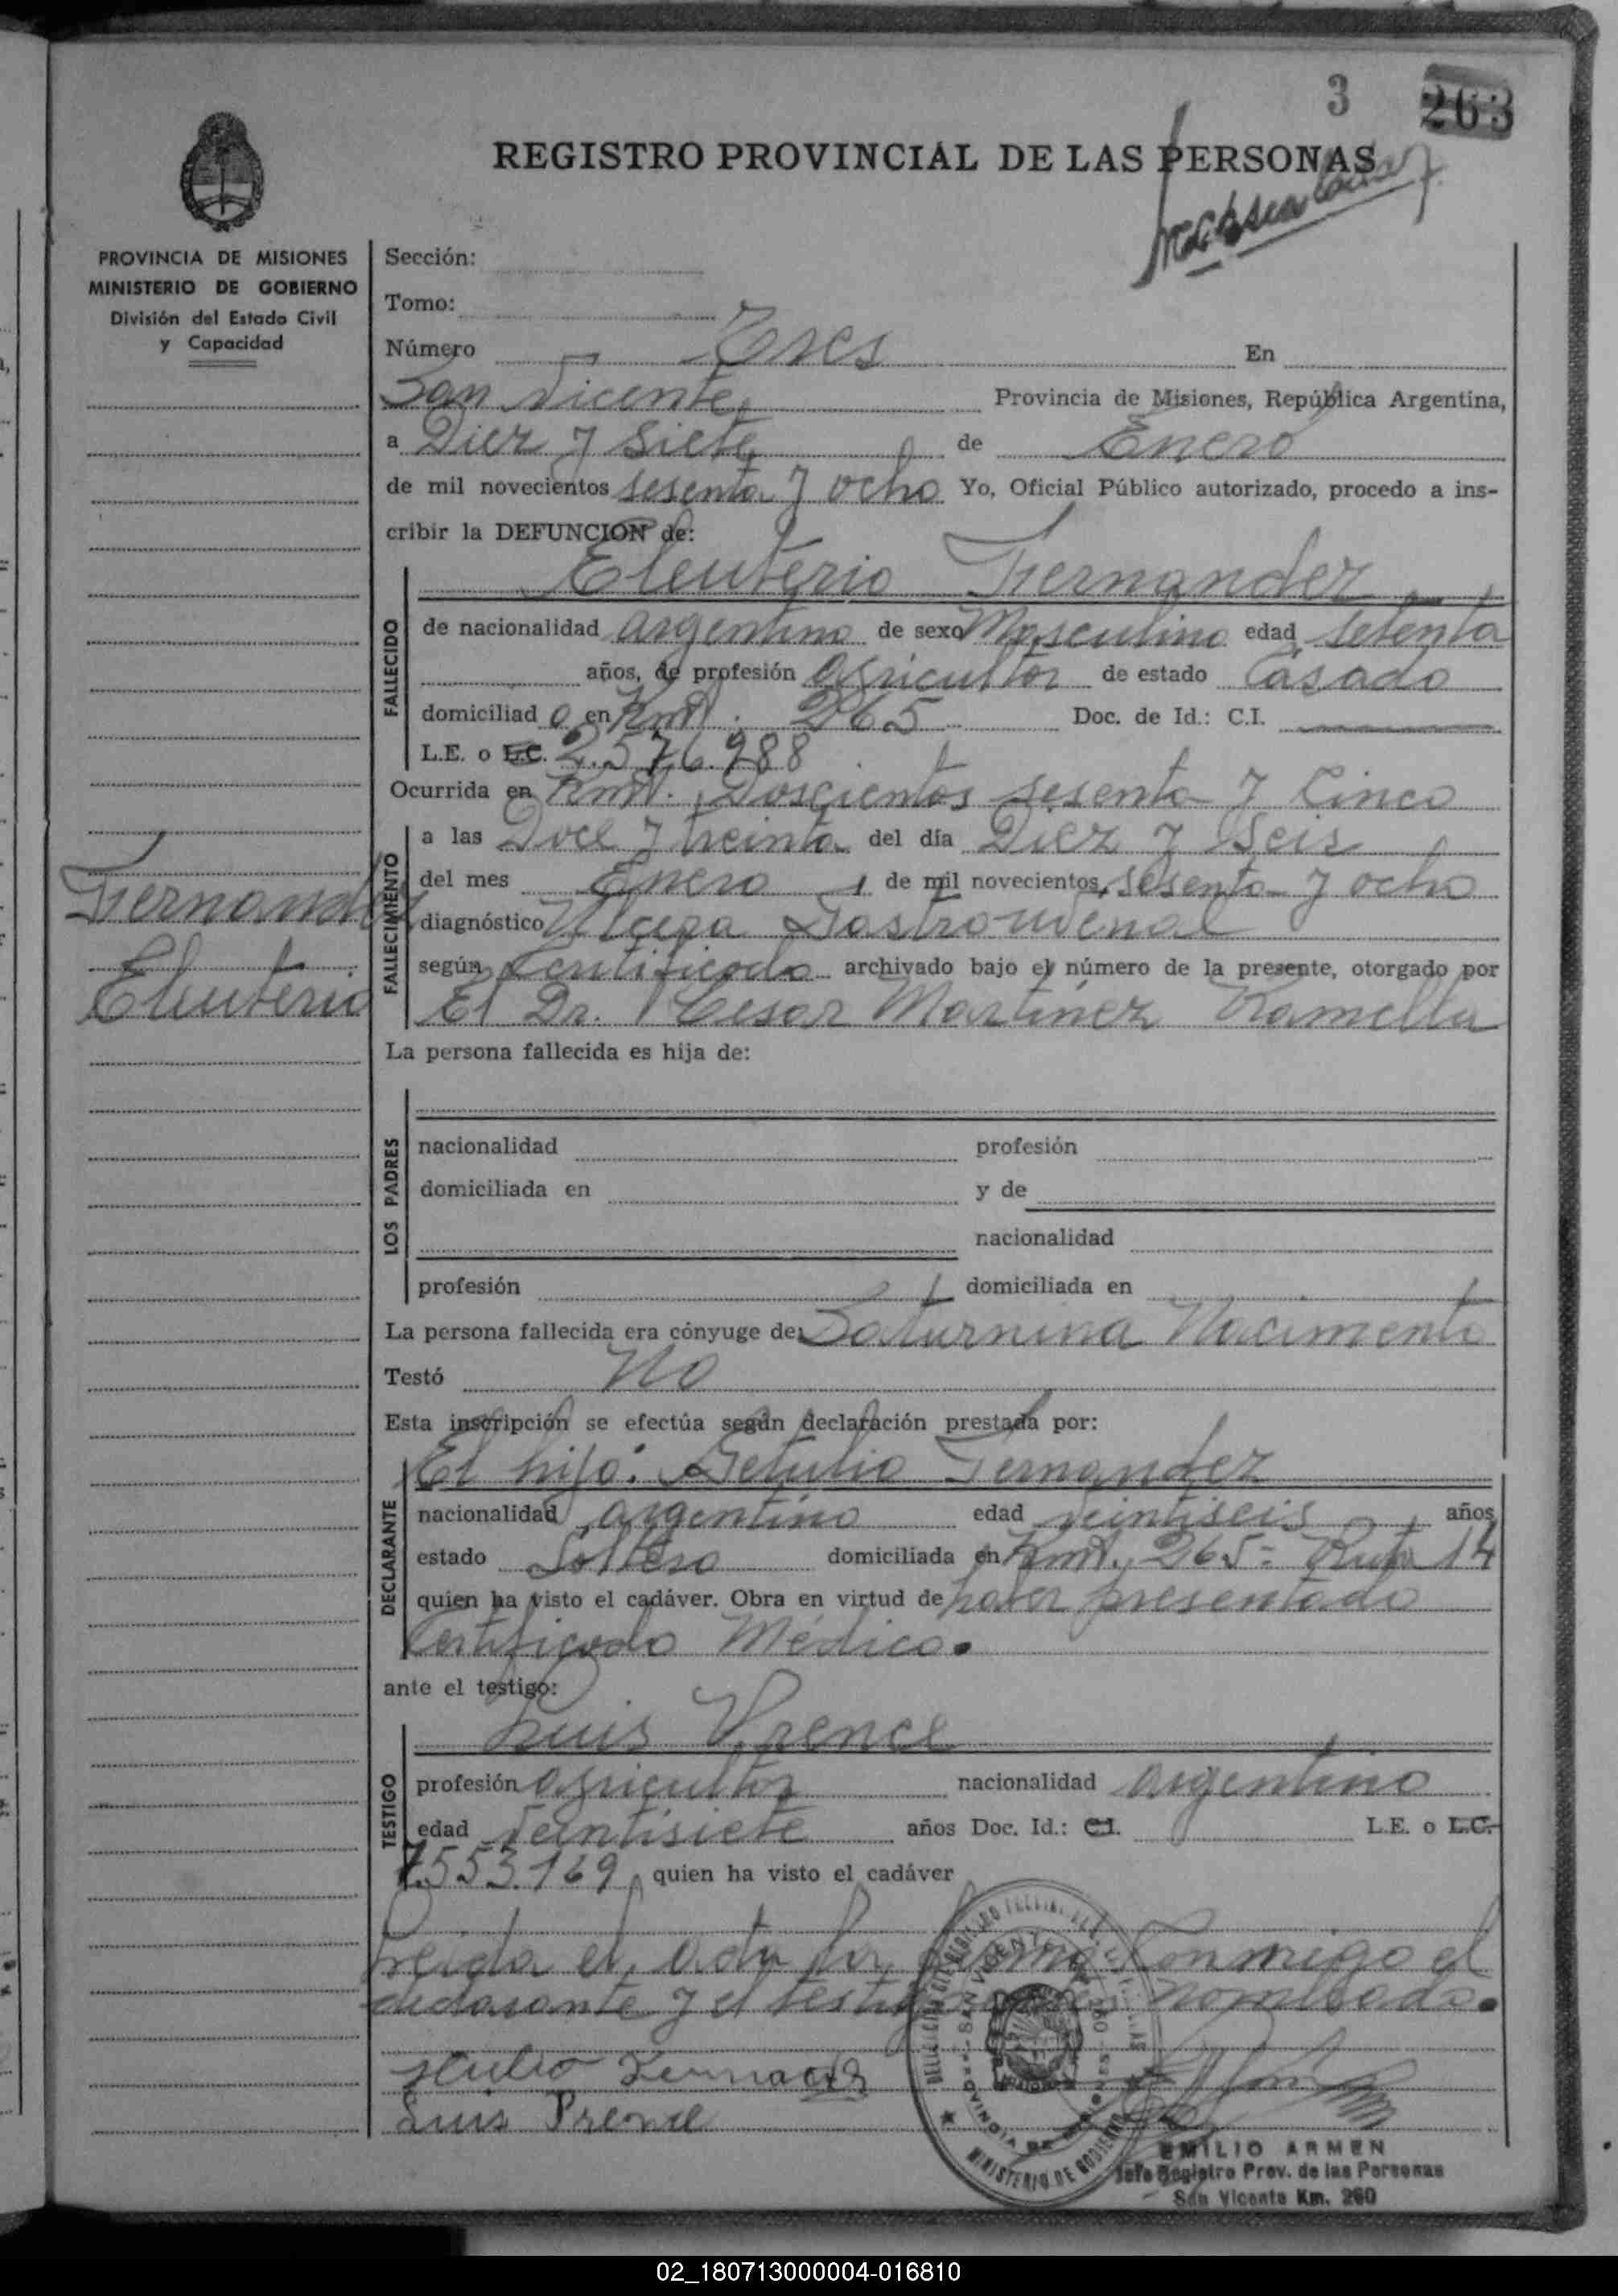 3 263
REGISTRO PROVINCIAL DE LAS PERSONAS
PROVINCIA DE MISIONES
MINISTERIO DE GOBIERNO
División del Estado Civil
y Capacidad
Sección:
Tomo:
Número Tres En
San Vicente, Provincia de Misiones, República Argentina,
a Diez y Siete de Enero
de mil novecientos sesenta y ocho Yo, Oficial Público autorizado, procedo a ins-
cribir la DEFUNCION de:
Eleuterio Fernandez
FALLECIDO
de nacionalidad argentino de sexo Masculino edad setenta
años, de profesión agricultor de estado Casado
domiciliado en Kmt. 265 Doc. de Id.: C.I.
L.E. o L.C. 2.576.988
Ocurrida en Kmt. Doscientos sesenta y Cinco
FALLECIMIENTO
a las Doce y treinta del día Diez y Seis
del mes Enero de mil novecientos, sesenta y ocho
Fernandez
diagnóstico Ulcera Gastroudenal
según Certificado archivado bajo el número de la presente, otorgado por
Eleuterio
El Dr. Cesar Martinez Ramella
La persona fallecida es hija de:
LOS PADRES
nacionalidad profesión
domiciliada en y de
nacionalidad
profesión domiciliada en
La persona fallecida era cónyuge de: Saturnina Nacimento
Testó No
Esta inscripción se efectúa según declaración prestada por:
El hijo: Getulio Fernandez
DECLARANTE
nacionalidad argentino edad veintiseis años
estado Soltero domiciliada en Kmt. 265- Ruta 14
quien ha visto el cadáver. Obra en virtud de haber presentado
Certificado Médico.
ante el testigo:
Luis Prence
TESTIGO
profesión agricultor nacionalidad argentino
edad veintisiete años Doc. Id.: C.I. L.E. o L.C.
7.553.169 quien ha visto el cadáver
Leida el acta la firma Conmigo el
declarante y el testigo nombrado.
Fernandez
Luis Prence
SAN VICENTE
PROVINCIA DE MISIONES
MINISTERIO DE GOBIERNO
EMILIO ARMEN
Jefe Registro Prov. de las Personas
San Vicente Km. 260
02_180713000004-016810